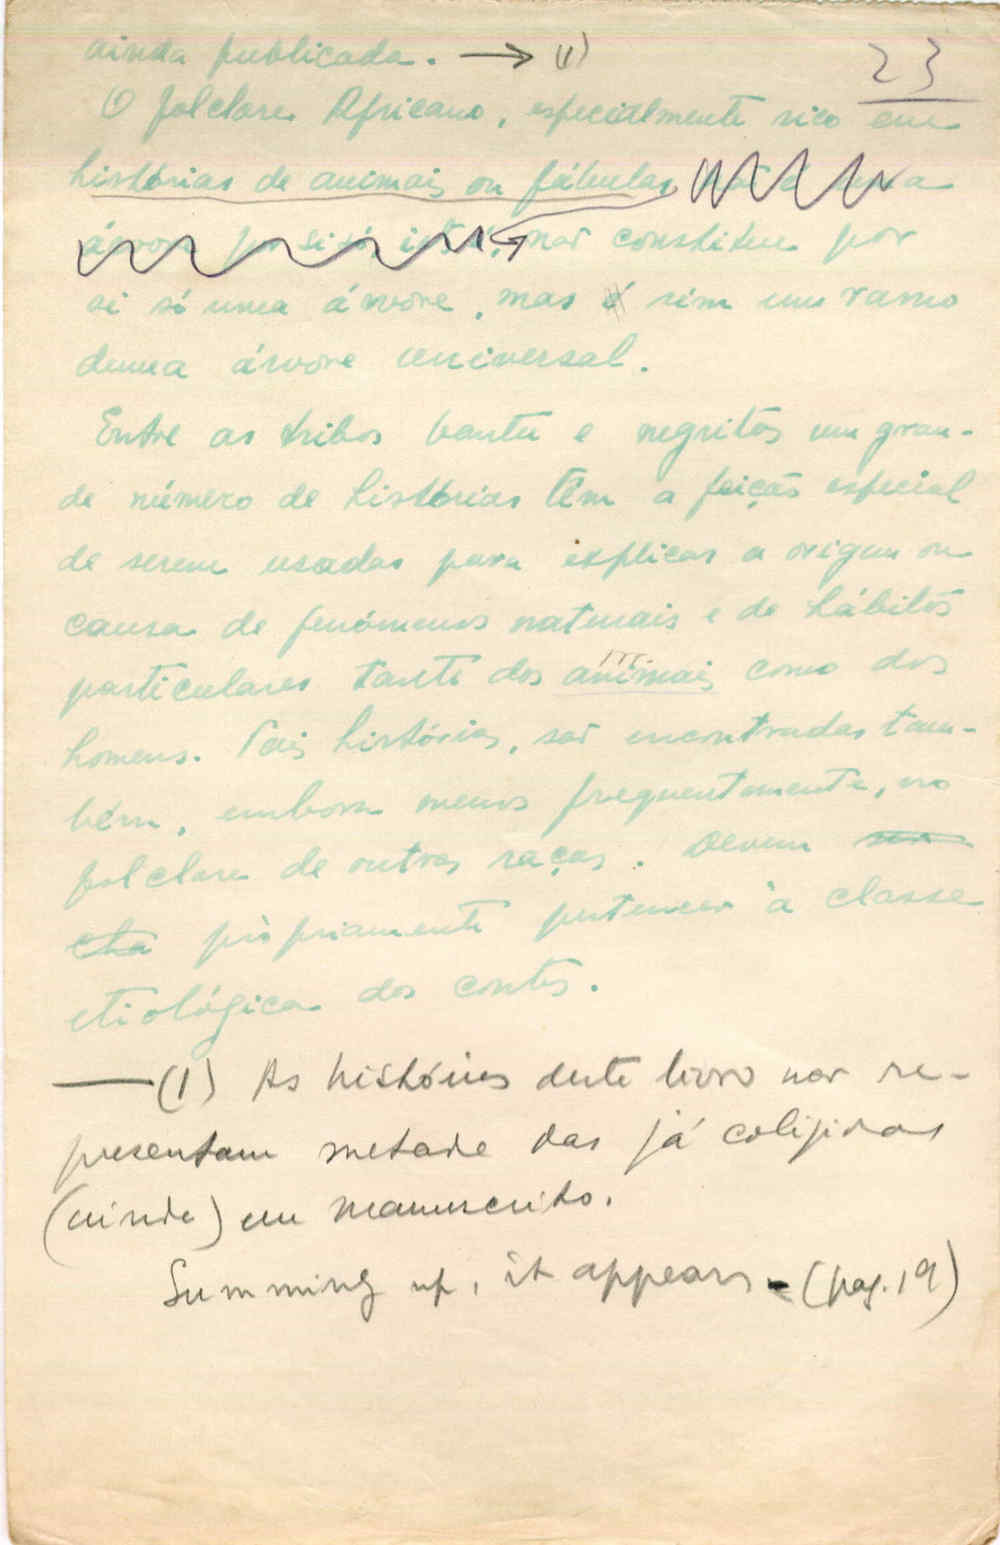 ainda publicada. → (1)
23
O folclore Africano, especialmente rico em
histórias de animais ou fábulas
não constitue por
si só uma árvore, mas é sim um ramo
duma árvore universal.
Entre as tribos bantu e negritos um gran-
de número de histórias têm a feição especial
de serem usadas para explicar a origem ou
causa de fenómenos naturais e de hábitos
particulares tanto dos animais como dos
homens. Tais histórias, são encontradas tam-
bém, embora menos frequentemente, no
folclore de outras raças. Devem
pròpriamente pertencer à classe
etiológica dos contos.
—(1) As histórias deste livro não re-
presentam metade das já coligidas
(ainda) em manuscrito.
Summing up, it appears - (pag. 19)